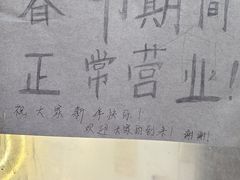 春节期间
正常营业!
祝大家新年快乐!
欢迎大家的到来! 谢谢!